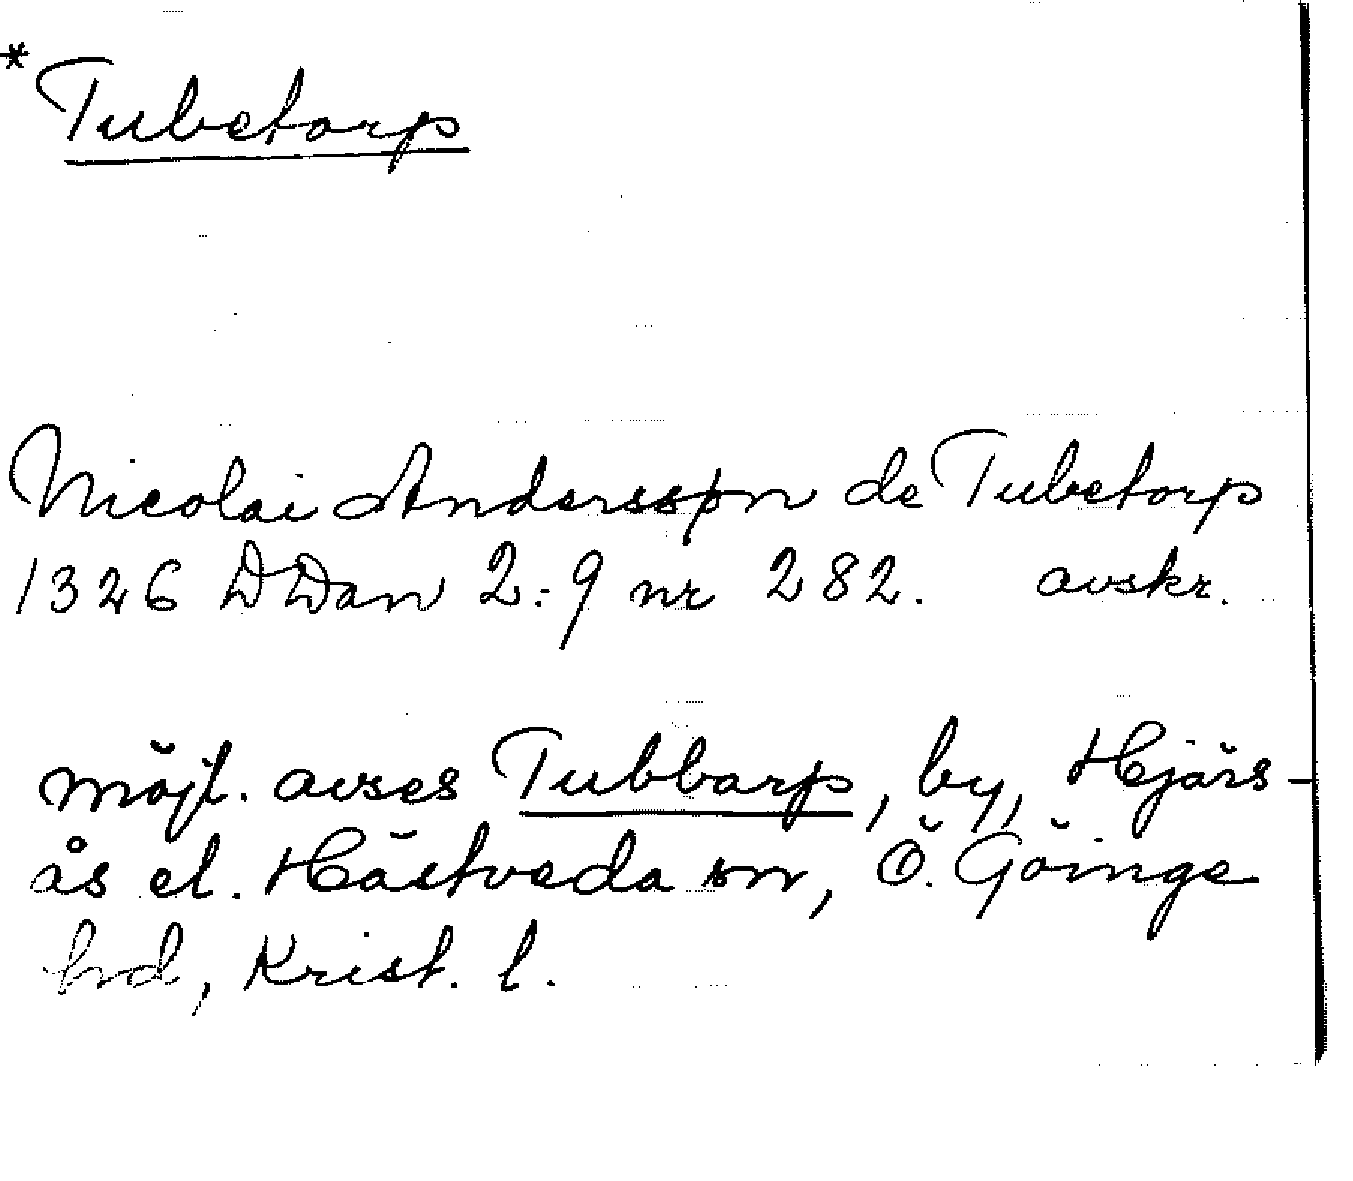 * Tubetorp
Nicolai Andersson de Tubetorp
1326 DDan 2:9 nr 282. avskr.
möjl. avses Tubbarp, by, Hjärs-
ås el. Hästveda sn, Ö. Göinge
hd, Krist. l.